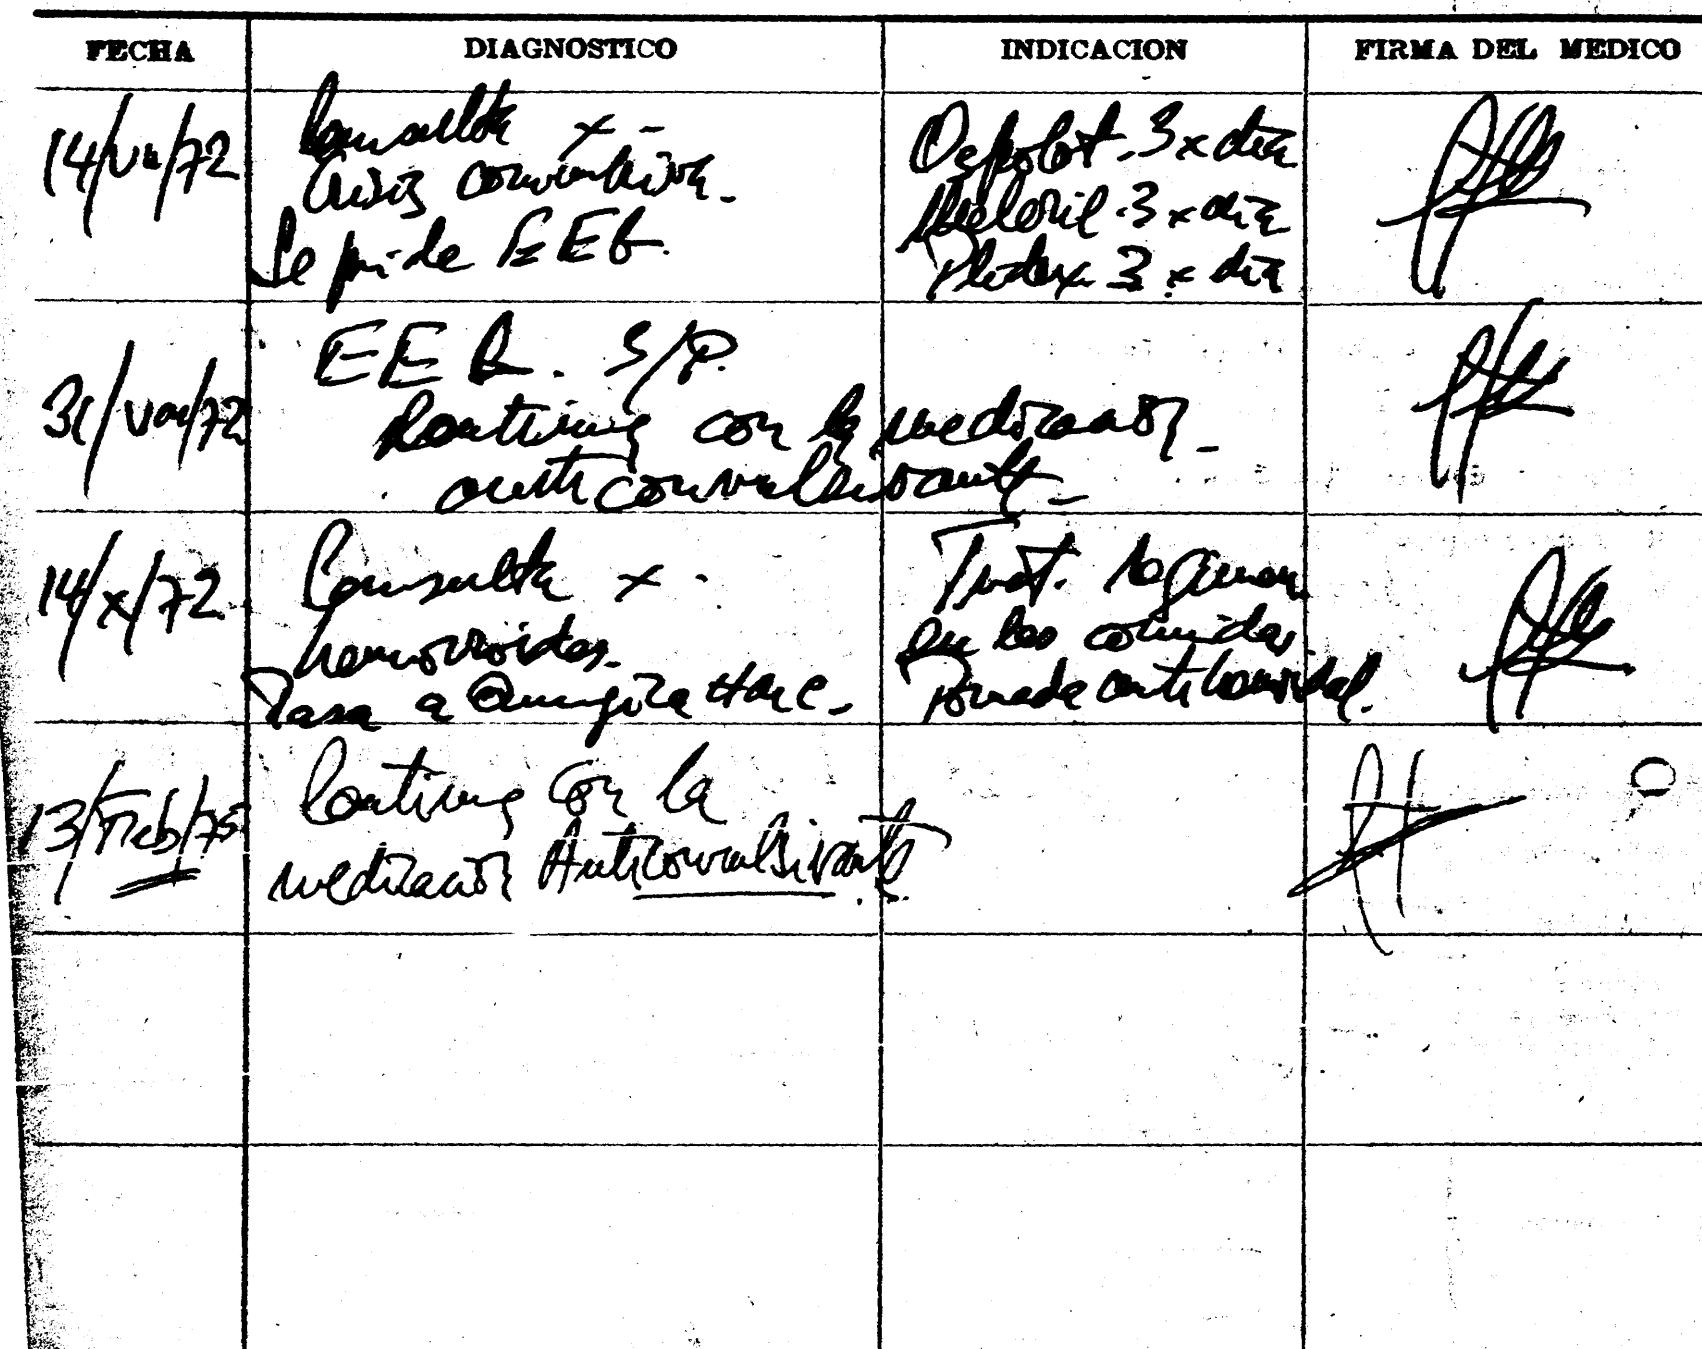 FECHA DIAGNOSTICO INDICACION FIRMA DEL MEDICO
14/VII/72
Consulta x -
Crisis convulsiva.
Se pide EEG.
3 x dia
Meleril 3 x dia
3 x dia
31/VIII/72
EEG. S/P.
Continua con la medicación
anticonvulsivante
14/X/72
Consulta x.
hemorroides.
Pasa a Cirugía
Trat. Regimen
en las comidas
Pomada antihemoroidal.
13/Feb/75
Continua con la
medicación Anticonvulsivante.